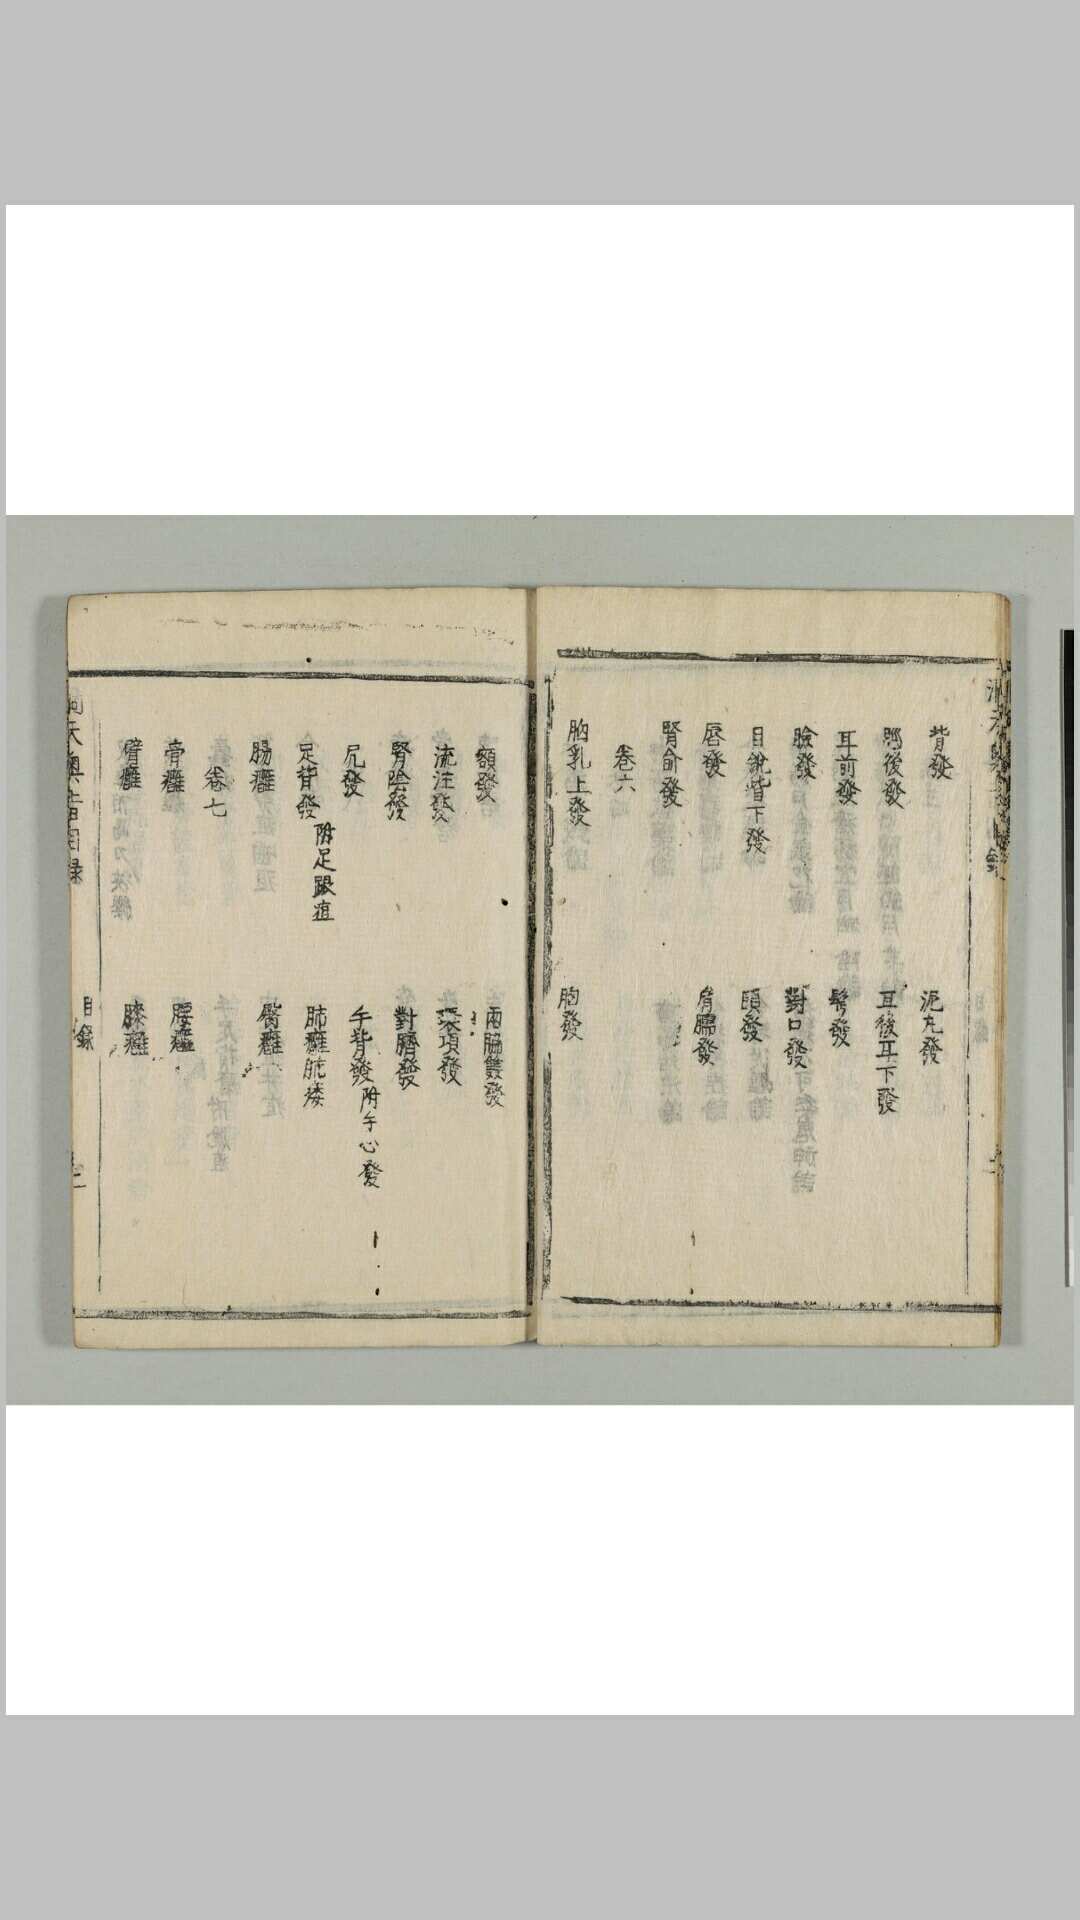 背發
泥丸發
腦後發
耳後耳下發
耳前發
鬂發
臉發
對口發
目銳眥下發
頤發
唇發
肩臑發
腎俞發
卷六
胸乳上發
胸發
額發
兩脇雙發
流注發
環項發
腎陰發
對臍發
尻發
手背發附手心發
足背發附足跟疽
肺癰肺痿
腸癰
臀癰
卷七
骨癰
腰癰
臂癰
膝癰
洞天奧旨目録
目録
二